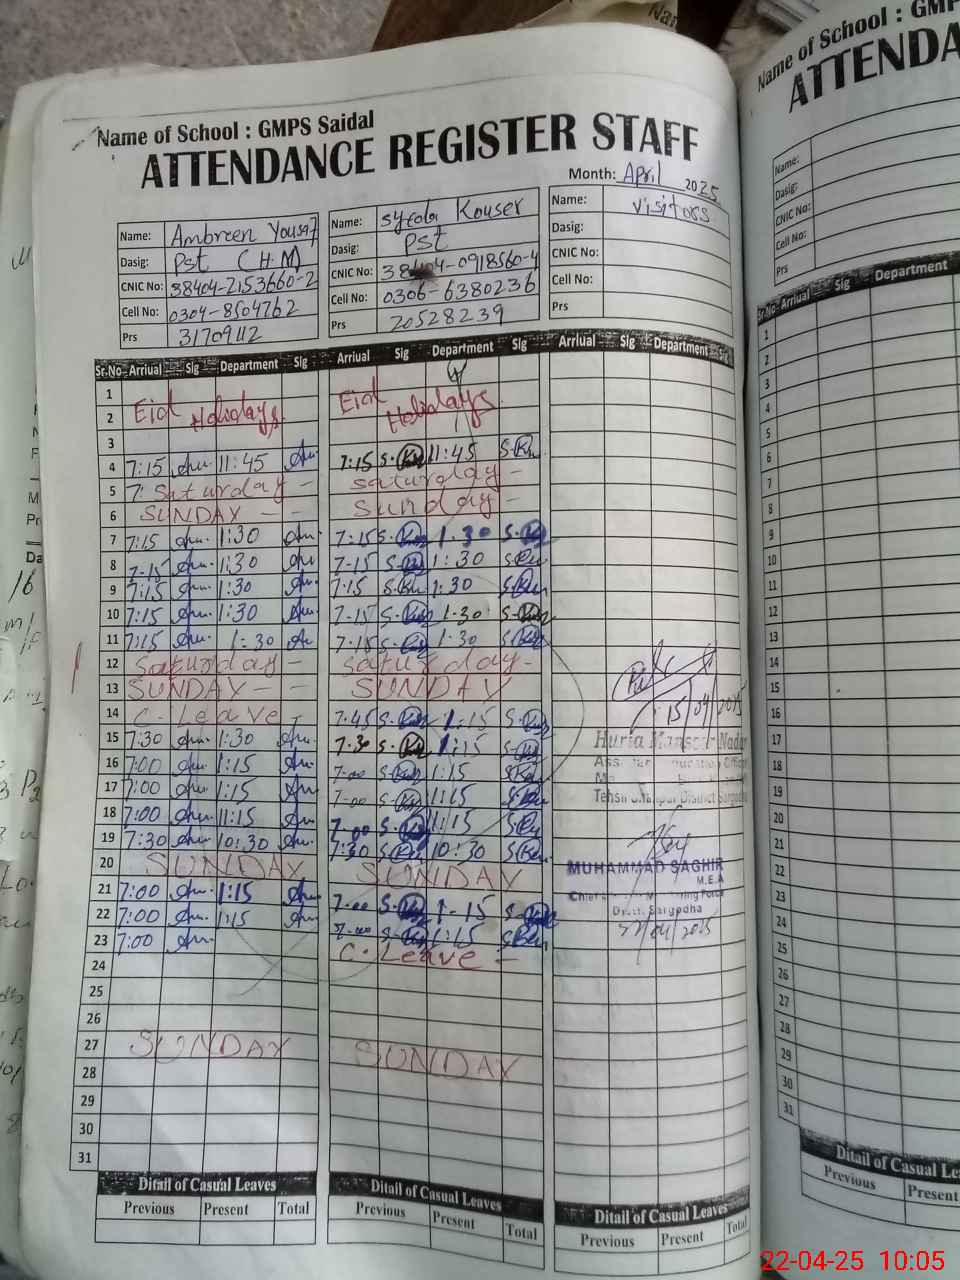 Name of School : GMPS Saidal
ATTENDANCE REGISTER STAFF
Month: April 2025
Name: Ambreen Yousaf
Dasig: Pst (H.M)
CNIC No: 38404-2153660-2
Cell No: 0304-8504762
Prs 31709112
Name: Kouser
Dasig: Pst
CNIC No: 38404-0918560-4
Cell No: 0306-6380236
Prs 20528239
Name: visitors
Dasig:
CNIC No:
Cell No:
Prs
Sr.No Arrival Sig Department Sig Arrival Sig Department Sig Arrival Sig Department Sig
1
2 Eid Holidays Eid Holidays
3
4 7:15 Am. 11:45 Am. 7:15 11:45
5 7: Saturday - saturday -
6 SUNDAY - - Sunday -
7 7:15 Am. 1:30 Am. 7:15 1.30
8 7-15 Am. 1:30 Am 7-15 1:30
9 7:15 Am. 1:30 Am. 7:15 1:30
10 7:15 Am. 1:30 Am. 7-15 1.30
11 7:15 Am. 1:30 Am 7-15 1:30
12 Saturday - saturday -
13 SUNDAY - - SUNDAY
14 C. Leave - 7.45 1:15
15 7:30 Am. 1:30 Am. 7.30 1:15
16 7:00 Am. 1:15 Am. 7-00 1:15
17 7:00 Am. 1:15 Am. 7-00 1:15
18 7:00 Am. 11:15 Am. 7-00 1:15
19 7:30 Am. 10:30 Am. 7:30 10:30
20 SUNDAY SUNDAY
21 7:00 Am. 1:15 Am. 7-00 1-15
22 7:00 Am. 1:15 Am. 7-00 1:15
23 7:00 Am. C. Leave -
24
25
26
27 SUNDAY SUNDAY
28
29
30
31
15/04/2025
Huria Mansoor
Tehsil District Sargodha
MUHAMMAD SAGHIR
M.E.A
Chief Force
Distt. Sargodha
22/04/2025
Ditail of Casual Leaves Ditail of Casual Leaves Ditail of Casual Leaves
Previous Present Total Previous Present Total Previous Present Total
Name of School : GMP
ATTENDA
Name:
Dasig:
CNIC No:
Cell No:
Prs
Sr.No Arrival Sig Department
1
2
3
4
5
6
7
8
9
10
11
12
13
14
15
16
17
18
19
20
21
22
23
24
25
26
27
28
29
30
31
Ditail of Casual Le
Previous Present
22-04-25 10:05